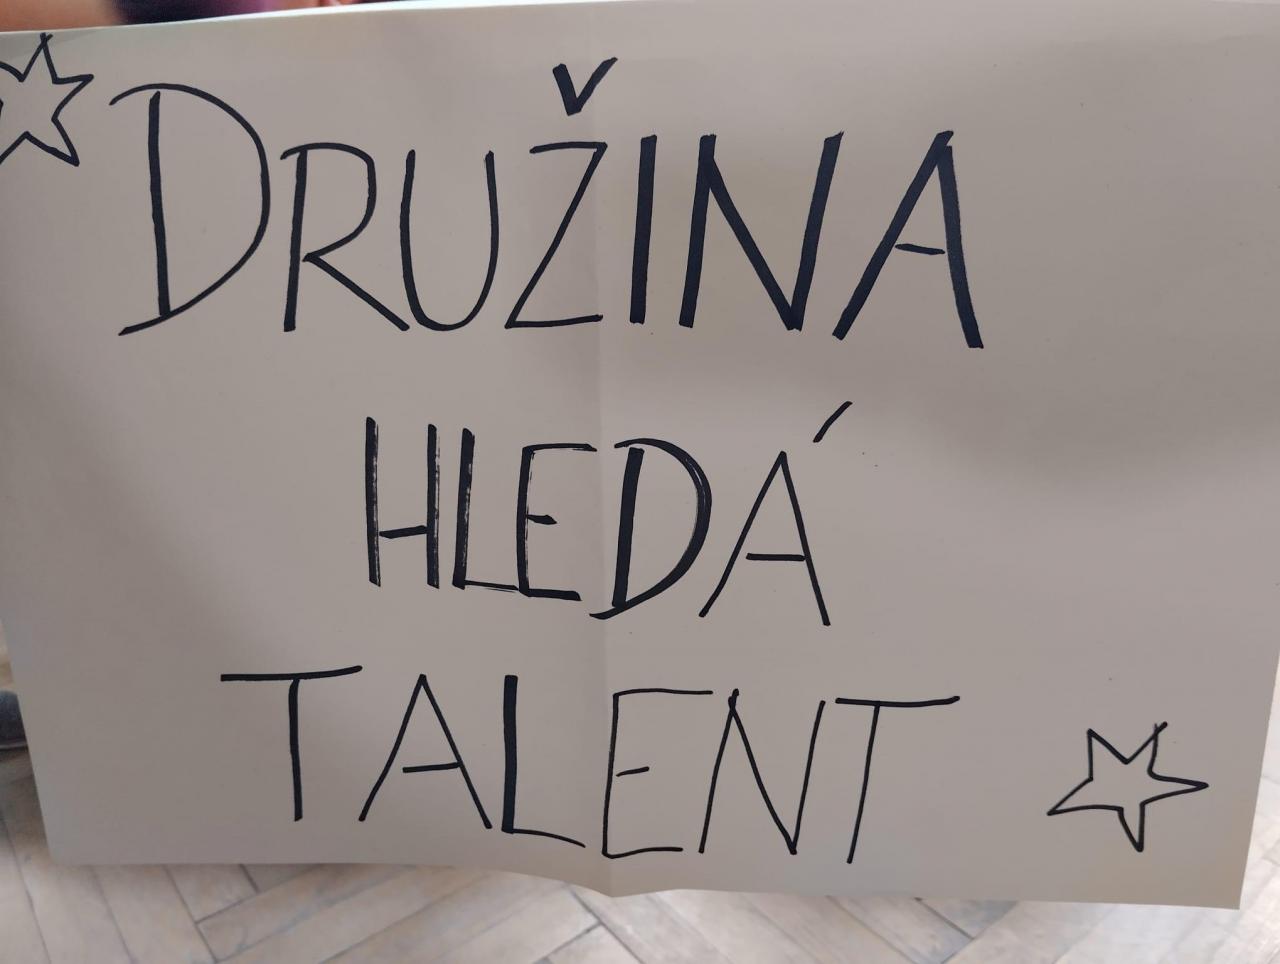 DRUŽINA
HLEDÁ
TALENT